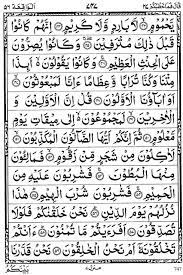 قال فما خطبكم ٢٧ ٧٣٤ الواقعة ٥٦
يَّحْمُوْمٍ لَّا بَارِدٍ وَّلَا كَرِيْمٍ اِنَّهُمْ كَانُوْا
قَبْلَ ذٰلِكَ مُتْرَفِيْنَ وَكَانُوْا يُصِرُّوْنَ
عَلَى الْحِنْثِ الْعَظِيْمِ وَكَانُوْا يَقُوْلُوْنَ اَىِٕذَا
مِتْنَا وَكُنَّا تُرَابًا وَّعِظَامًا ءَاِنَّا لَمَبْعُوْثُوْنَ
اَوَ اٰبَآؤُنَا الْاَوَّلُوْنَ قُلْ اِنَّ الْاَوَّلِيْنَ وَ
الْاٰخِرِيْنَ لَمَجْمُوْعُوْنَ اِلٰى مِيْقَاتِ يَوْمٍ
مَّعْلُوْمٍ ثُمَّ اِنَّكُمْ اَيُّهَا الضَّآلُّوْنَ الْمُكَذِّبُوْنَ
لَاٰكِلُوْنَ مِنْ شَجَرٍ مِّنْ زَقُّوْمٍ فَمَالِـُٔوْنَ مِنْهَا
الْبُطُوْنَ فَشٰرِبُوْنَ عَلَيْهِ مِنَ
الْحَمِيْمِ فَشٰرِبُوْنَ شُرْبَ الْهِيْمِ هٰذَا
نُزُلُهُمْ يَوْمَ الدِّيْنِ نَحْنُ خَلَقْنٰكُمْ فَلَوْلَا
تُصَدِّقُوْنَ اَفَرَءَيْتُمْ مَّا تُمْنُوْنَ ءَاَنْتُمْ
تَخْلُقُوْنَهٗٓ اَمْ نَحْنُ الْخٰلِقُوْنَ نَحْنُ قَدَّرْنَا
بَيْنَكُمُ